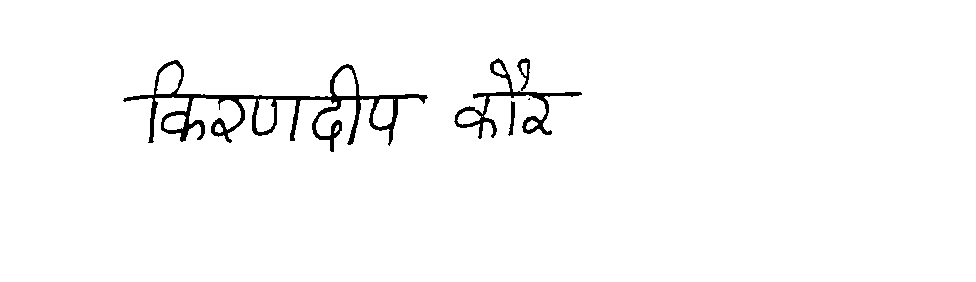 किरणदीप कौर